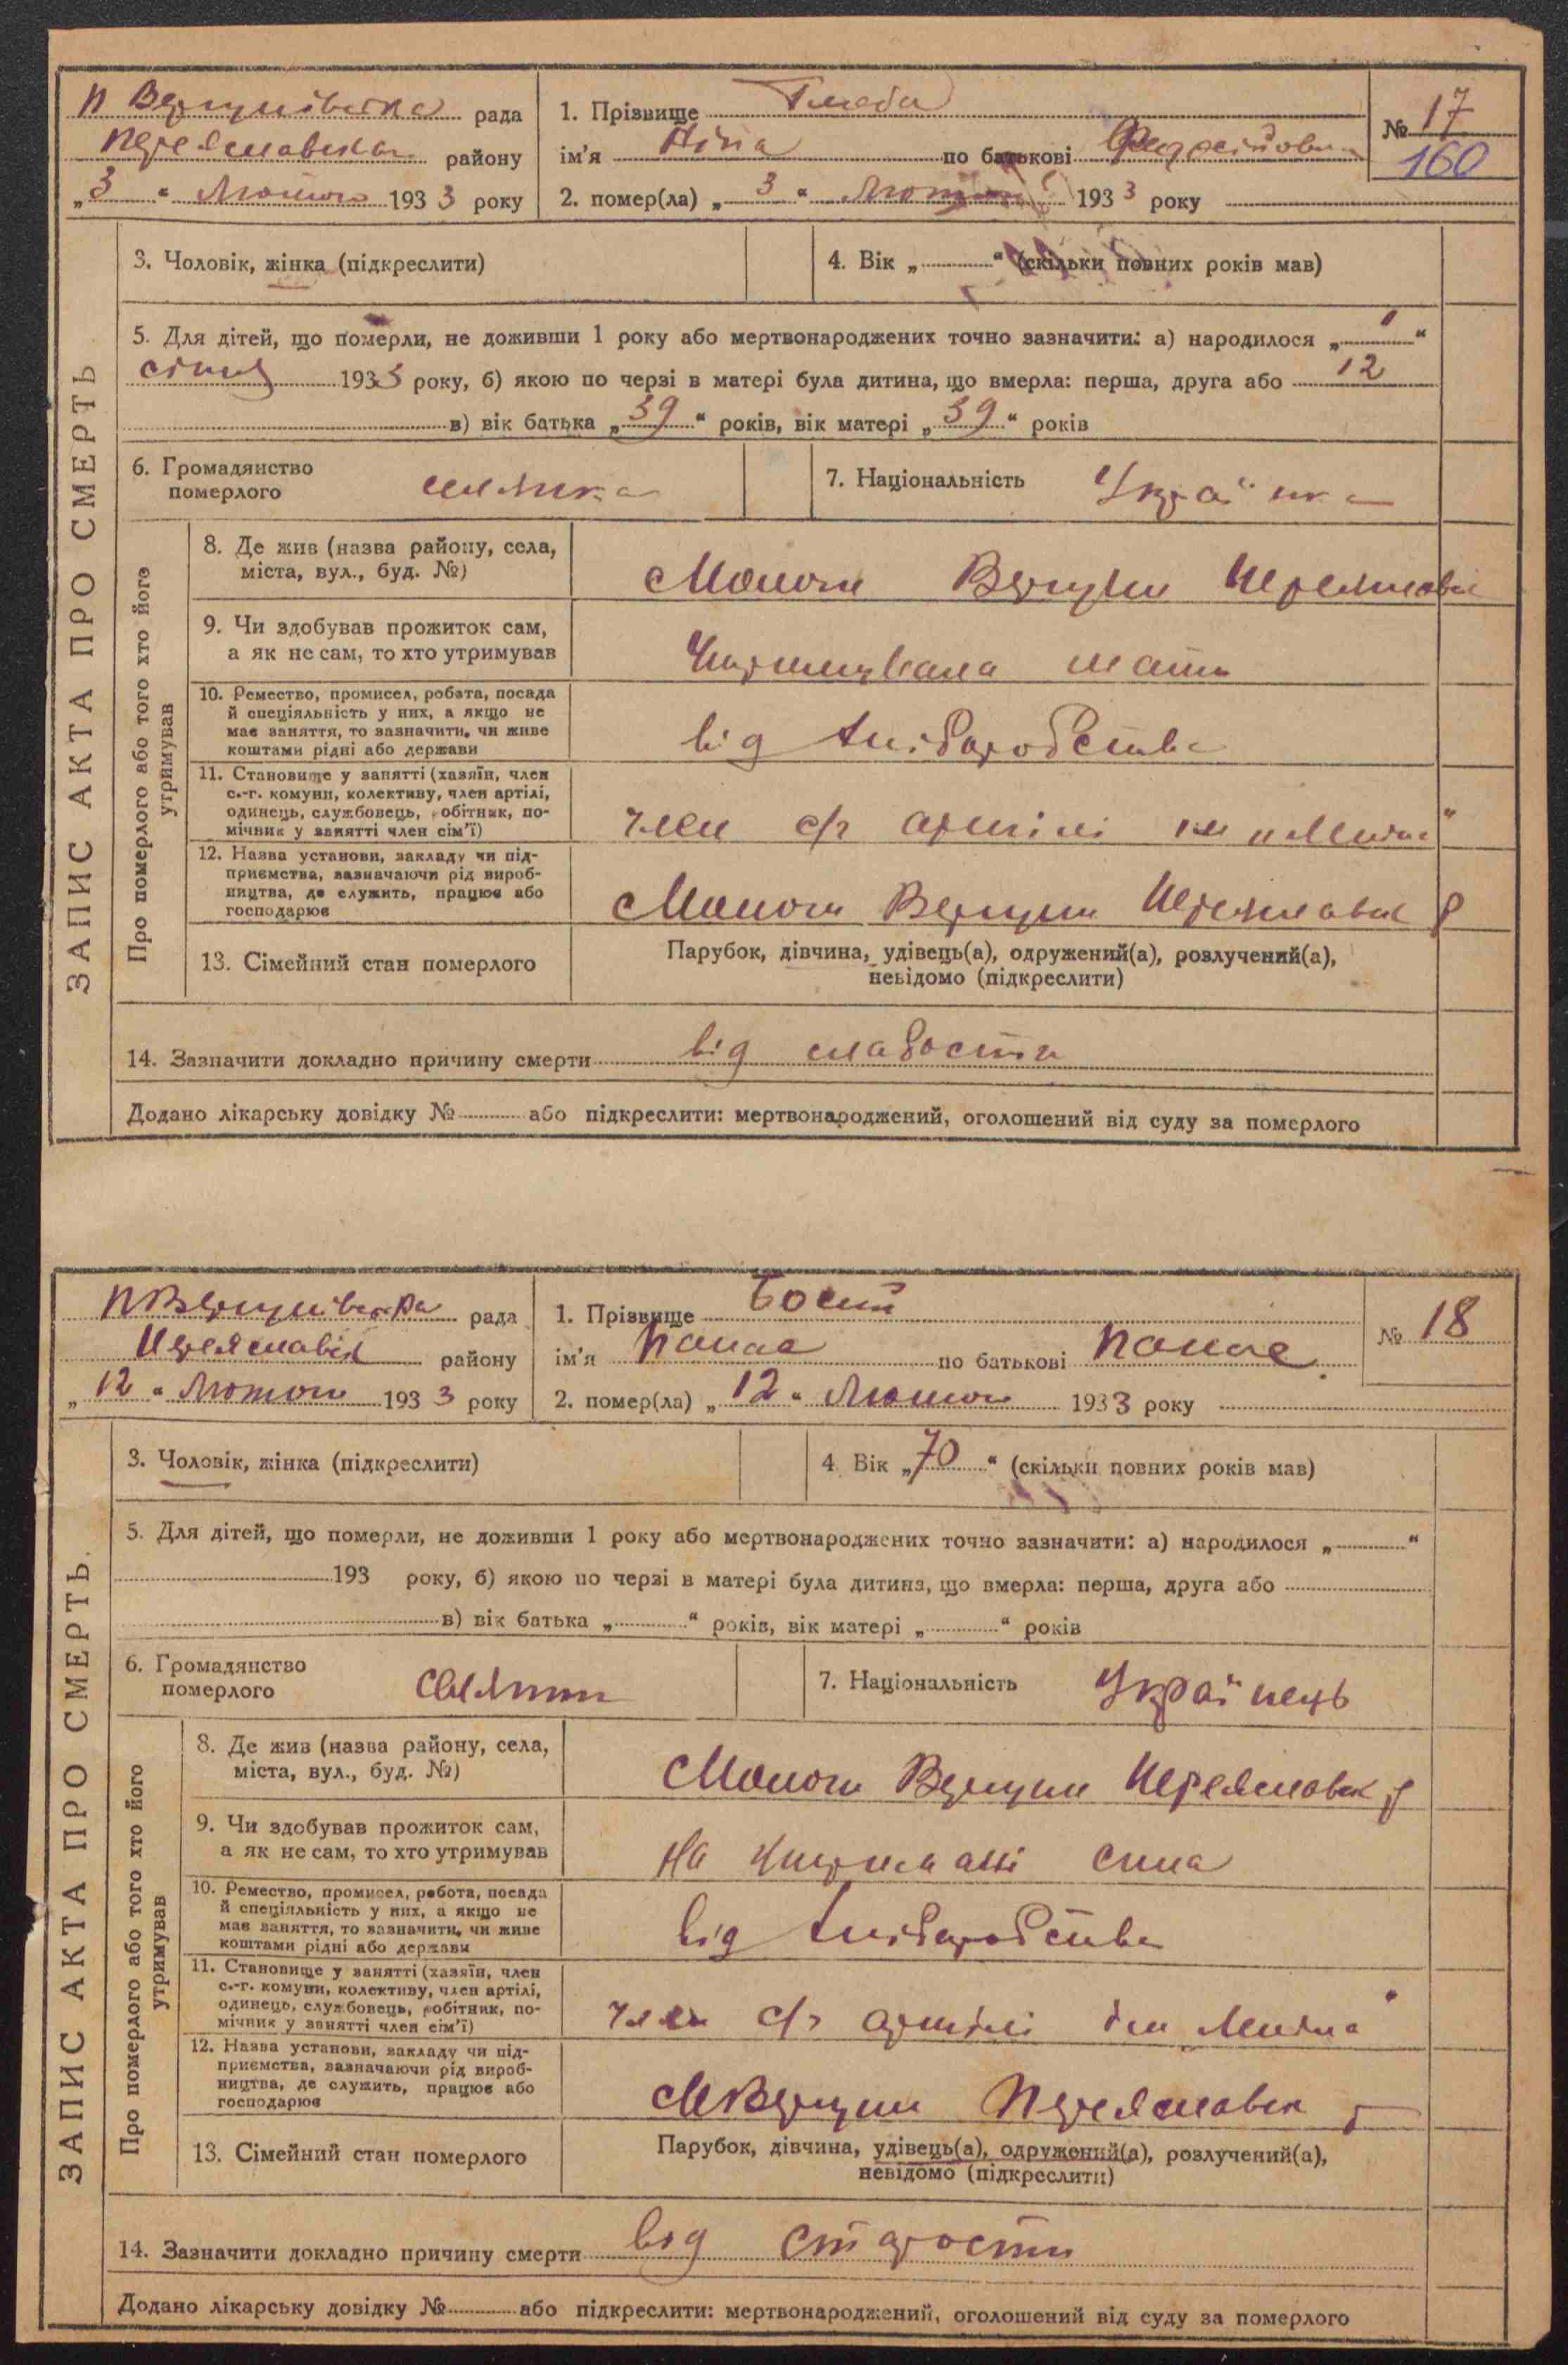 ЗАПИС АКТА ПРО СМЕРТЬ
рада
Переяславска району
„3“ Лютого 1933 року
1. Прізвище
ім'я Ніна по батькові
2. помер(ла) „3“ 1933 року
№ 17
160
3. Чоловік, жінка (підкреслити)
4. Вік „ “ (скільки повних років мав)
5. Для дітей, що померли, не доживши 1 року або мертвонароджених точно зазначити: а) народилося „1“
січня 1933 року, б) якою по черзі в матері була дитина, що вмерла: перша, друга або 12
в) вік батька „39“ років, вік матері „39“ років
6. Громадянство
померлого
селянка
7. Національність Українка
Про померлого або того хто його
утримував
8. Де жив (назва району, села,
міста, вул., буд. №)
9. Чи здобував прожиток сам,
а як не сам, то хто утримував
мати
10. Ремество, промисел, робота, посада
й спеціяльність у них, а якщо не
має заняття, то зазначити, чи живе
коштами рідні або держави
від хліборобства
11. Становище у занятті (хазяїн, член
с.-г. комуни, колективу, член артілі,
одинець, службовець, робітник, по-
мічник у занятті член сім'ї)
член с/г артілі
12. Назва установи, закладу чи під-
приємства, зазначаючи рід вироб-
ництва, де служить, працює або
господарює
13. Сімейний стан померлого
Парубок, дівчина, удівець(а), одружений(а), розлучений(а),
невідомо (підкреслити)
14. Зазначити докладно причину смерти від слабости
Додано лікарську довідку № або підкреслити: мертвонароджений, оголошений від суду за померлого
ЗАПИС АКТА ПРО СМЕРТЬ.
рада
району
„12“ Лютого 1933 року
1. Прізвище
ім'я Панас по батькові
2. помер(ла) „12“ Лютого 1933 року
№ 18
3. Чоловік, жінка (підкреслити)
4. Вік „70“ (скільки повних років мав)
5. Для дітей, що померли, не доживши 1 року або мертвонароджених точно зазначити: а) народилося „ “
193 року, б) якою по черзі в матері була дитина, що вмерла: перша, друга або
в) вік батька „ “ років, вік матері „ “ років
6. Громадянство
померлого
селянин
7. Національність Українець
Про померлого або того хто його
утримував
8. Де жив (назва району, села,
міста, вул., буд. №)
9. Чи здобував прожиток сам,
а як не сам, то хто утримував
На сина
10. Ремество, промисел, робота, посада
й спеціяльність у них, а якщо не
має заняття, то зазначити, чи живе
коштами рідні або держави
від хліборобства
11. Становище у занятті (хазяїн, член
с.-г. комуни, колективу, член артілі,
одинець, службовець, робітник, по-
мічник у занятті член сім'ї)
член с/г артілі
12. Назва установи, закладу чи під-
приємства, зазначаючи рід вироб-
ництва, де служить, працює або
господарює
13. Сімейний стан померлого
Парубок, дівчина, удівець(а), одружений(а), розлучений(а),
невідомо (підкреслити)
14. Зазначити докладно причину смерти від старости
Додано лікарську довідку № або підкреслити: мертвонароджений, оголошений від суду за померлого